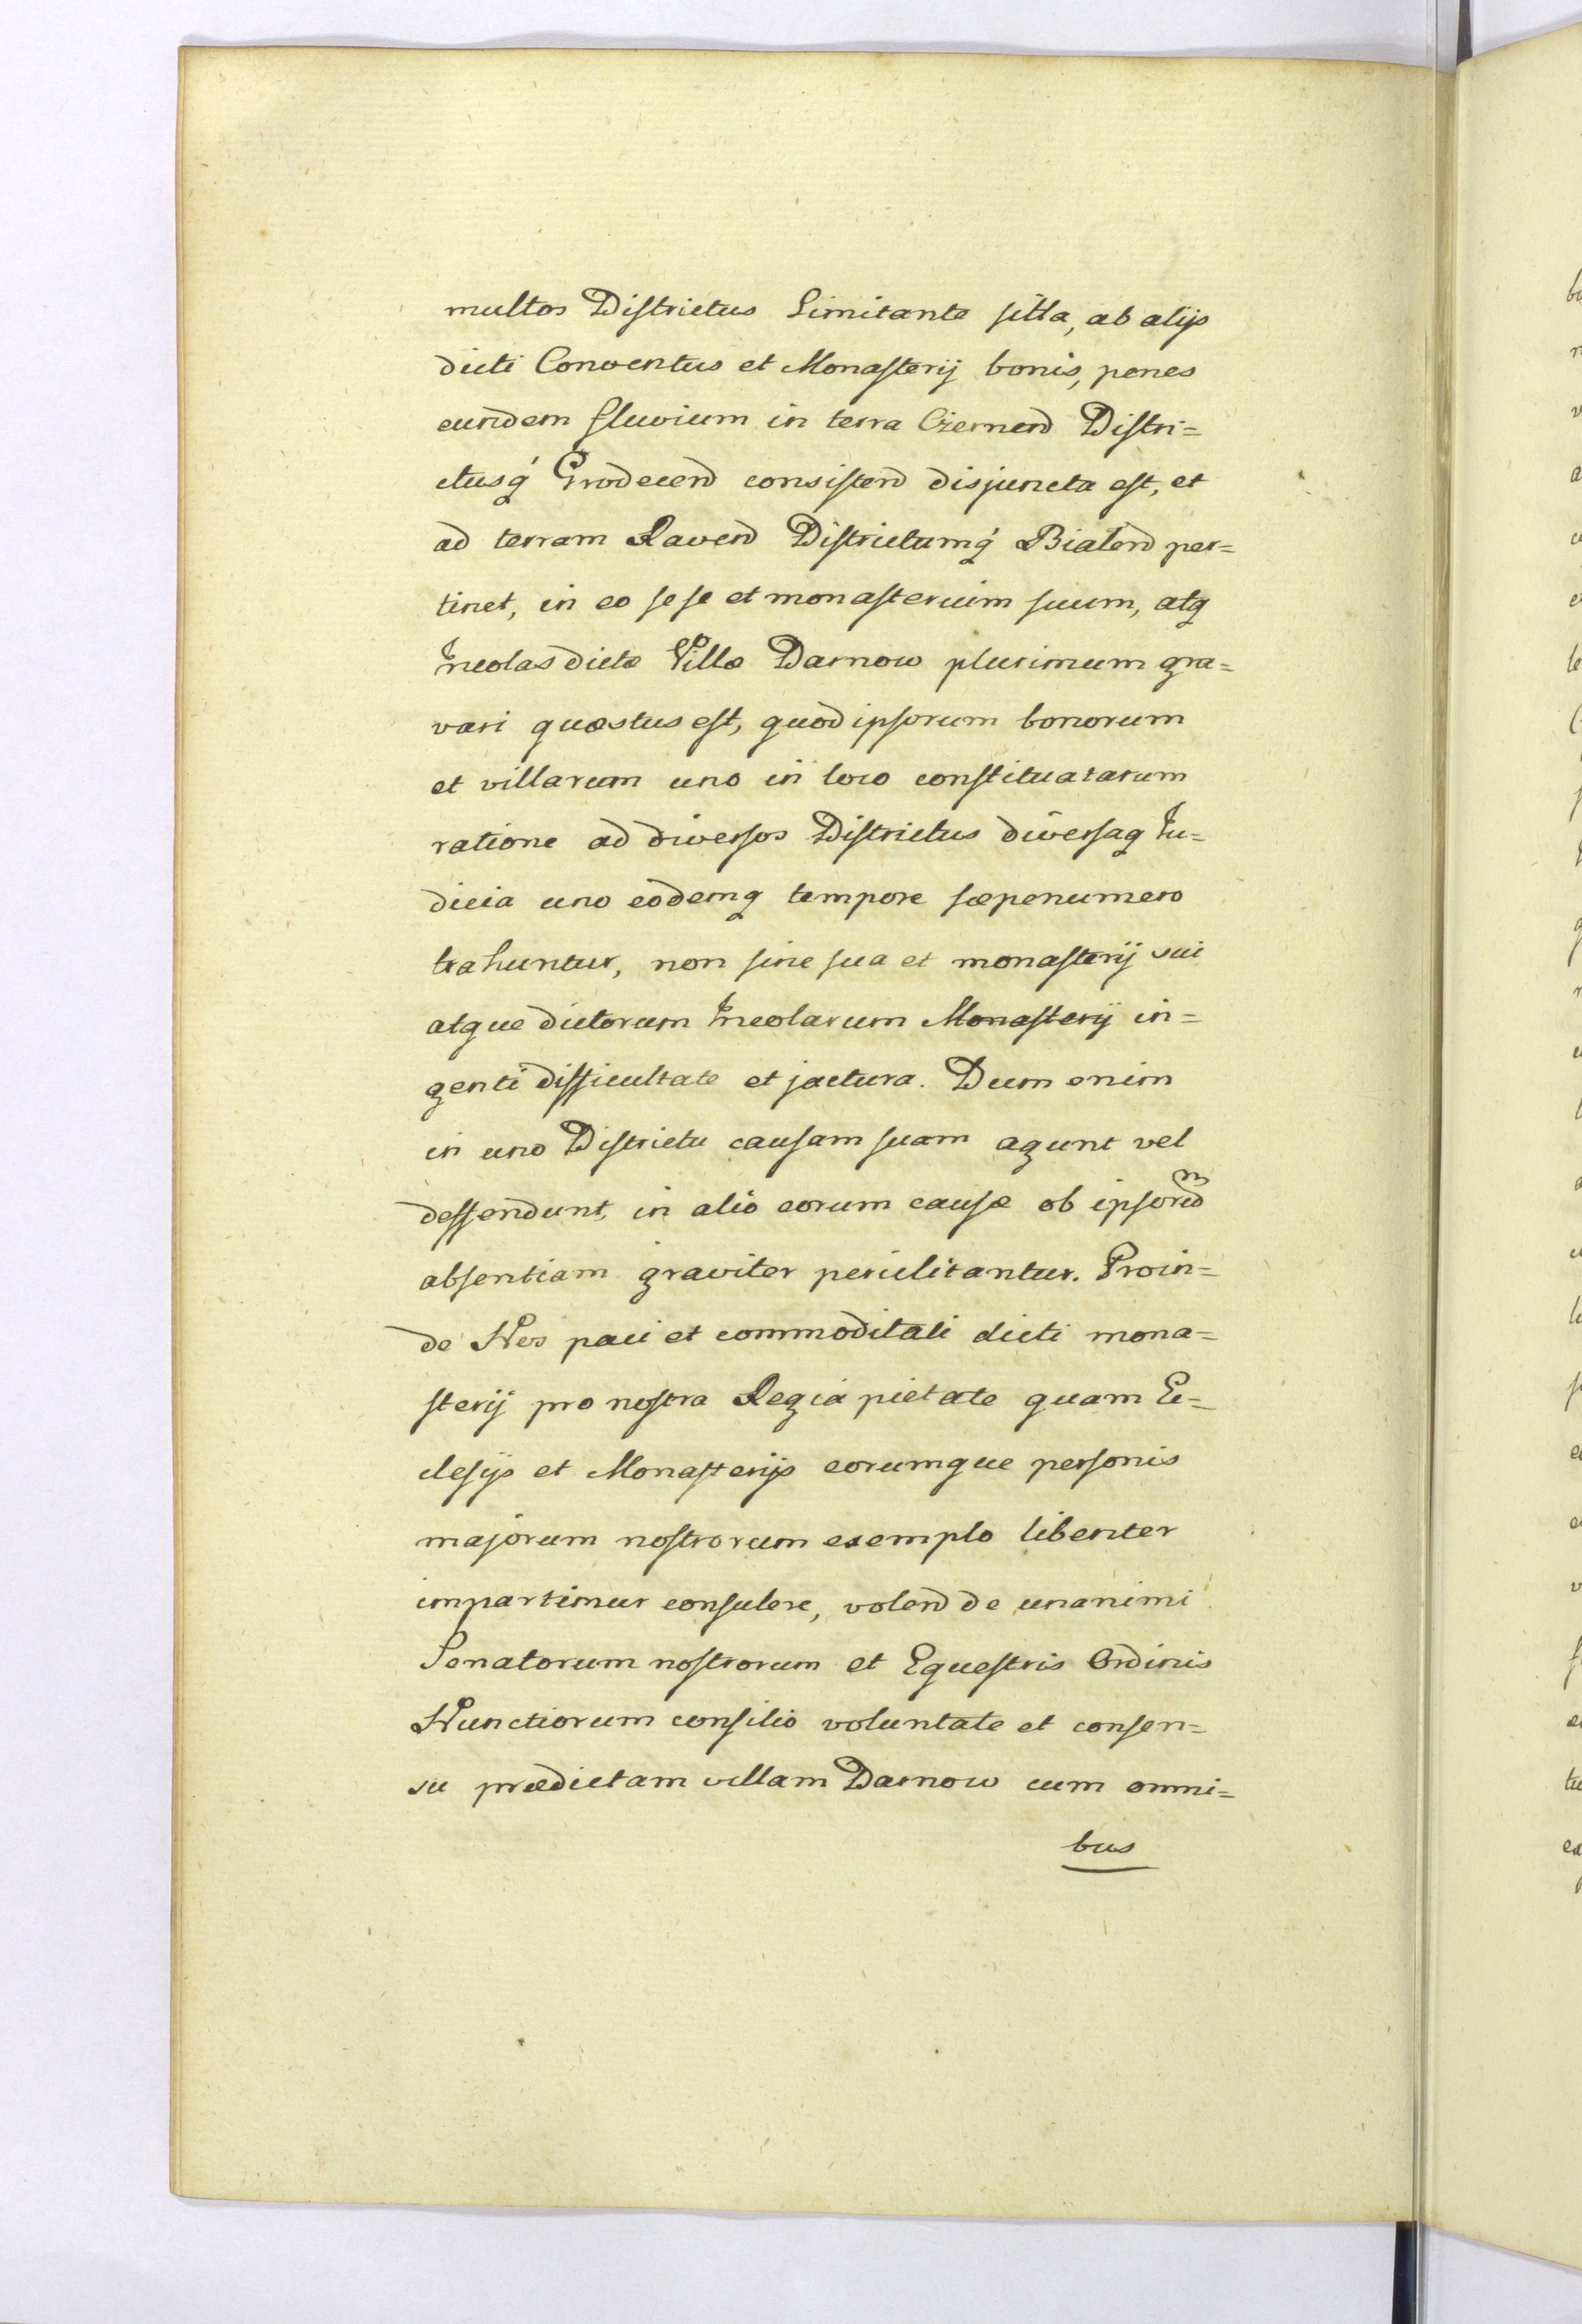 multos Districtus Limitante sitta, ab alijs
dicti Conventus et Monasterij bonis, penes
eundem fluvium in terra Czernen̄ Distri=
ctusq́ Grodecen̄ consisten̄ disjuncta est, et
ad terram Raven̄ Districtumq́ Bialen̄ per=
tinet, in eo sese et monasterium suum, atq
Incolas dictæ Villæ Darnow plurimum gra=
vari quæstus est, quod ipsorum bonorum
et villarum uno in loco constituatarum
ratione ad diversos Districtus diversaq Ju=
dicia uno eodemq tempore sæpenumero
trahuntur, non sine sua et monasterij sui
atque dictorum Incolarum Monasterij in=
genti difficultate et jactura. Dum enim
in uno Districtu causam suam agunt vel
deffendunt, in alio eorum causæ ob ipsorum
absentiam graviter periclitantur. Proin=
de Nos paci et commoditati dicti mona=
sterij pro nostra Regia pietate quam Ec=
clesijs et Monasterijs eorumque personis
majorum nostrorum exemplo libenter
impartimur consulere, volen̄ de unanimi
Senatorum nostrorum et Equestris Ordinis
Nunctiorum consilio voluntate et consen=
su prædictam villam Darnow cum omni=
bus